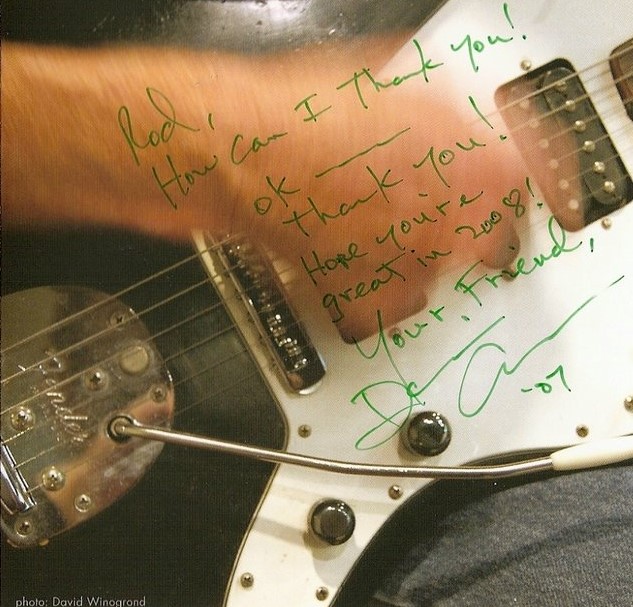 Rod,
How can I thank you!
OK —
thank you!
Hope you're
great in 2008!
Your Friend,
-07
Fender
photo: David Winogrond